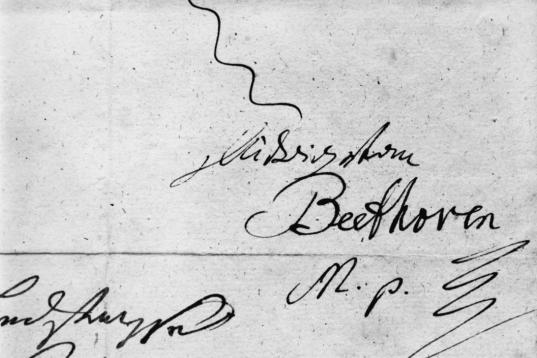 Ludwig van
Beethoven
M. p.